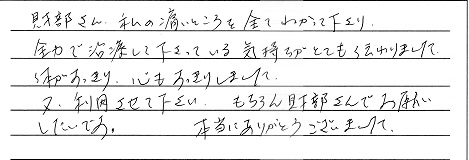 財部さん、私の痛いところを全てわかって下さり、
全力で治療して下さっている気持ちがとても伝わりました。
体がすっきり、心もすっきりしました。
又、利用させて下さい。もちろん財部さんでお願い
したいです。　本当にありがとうございました。